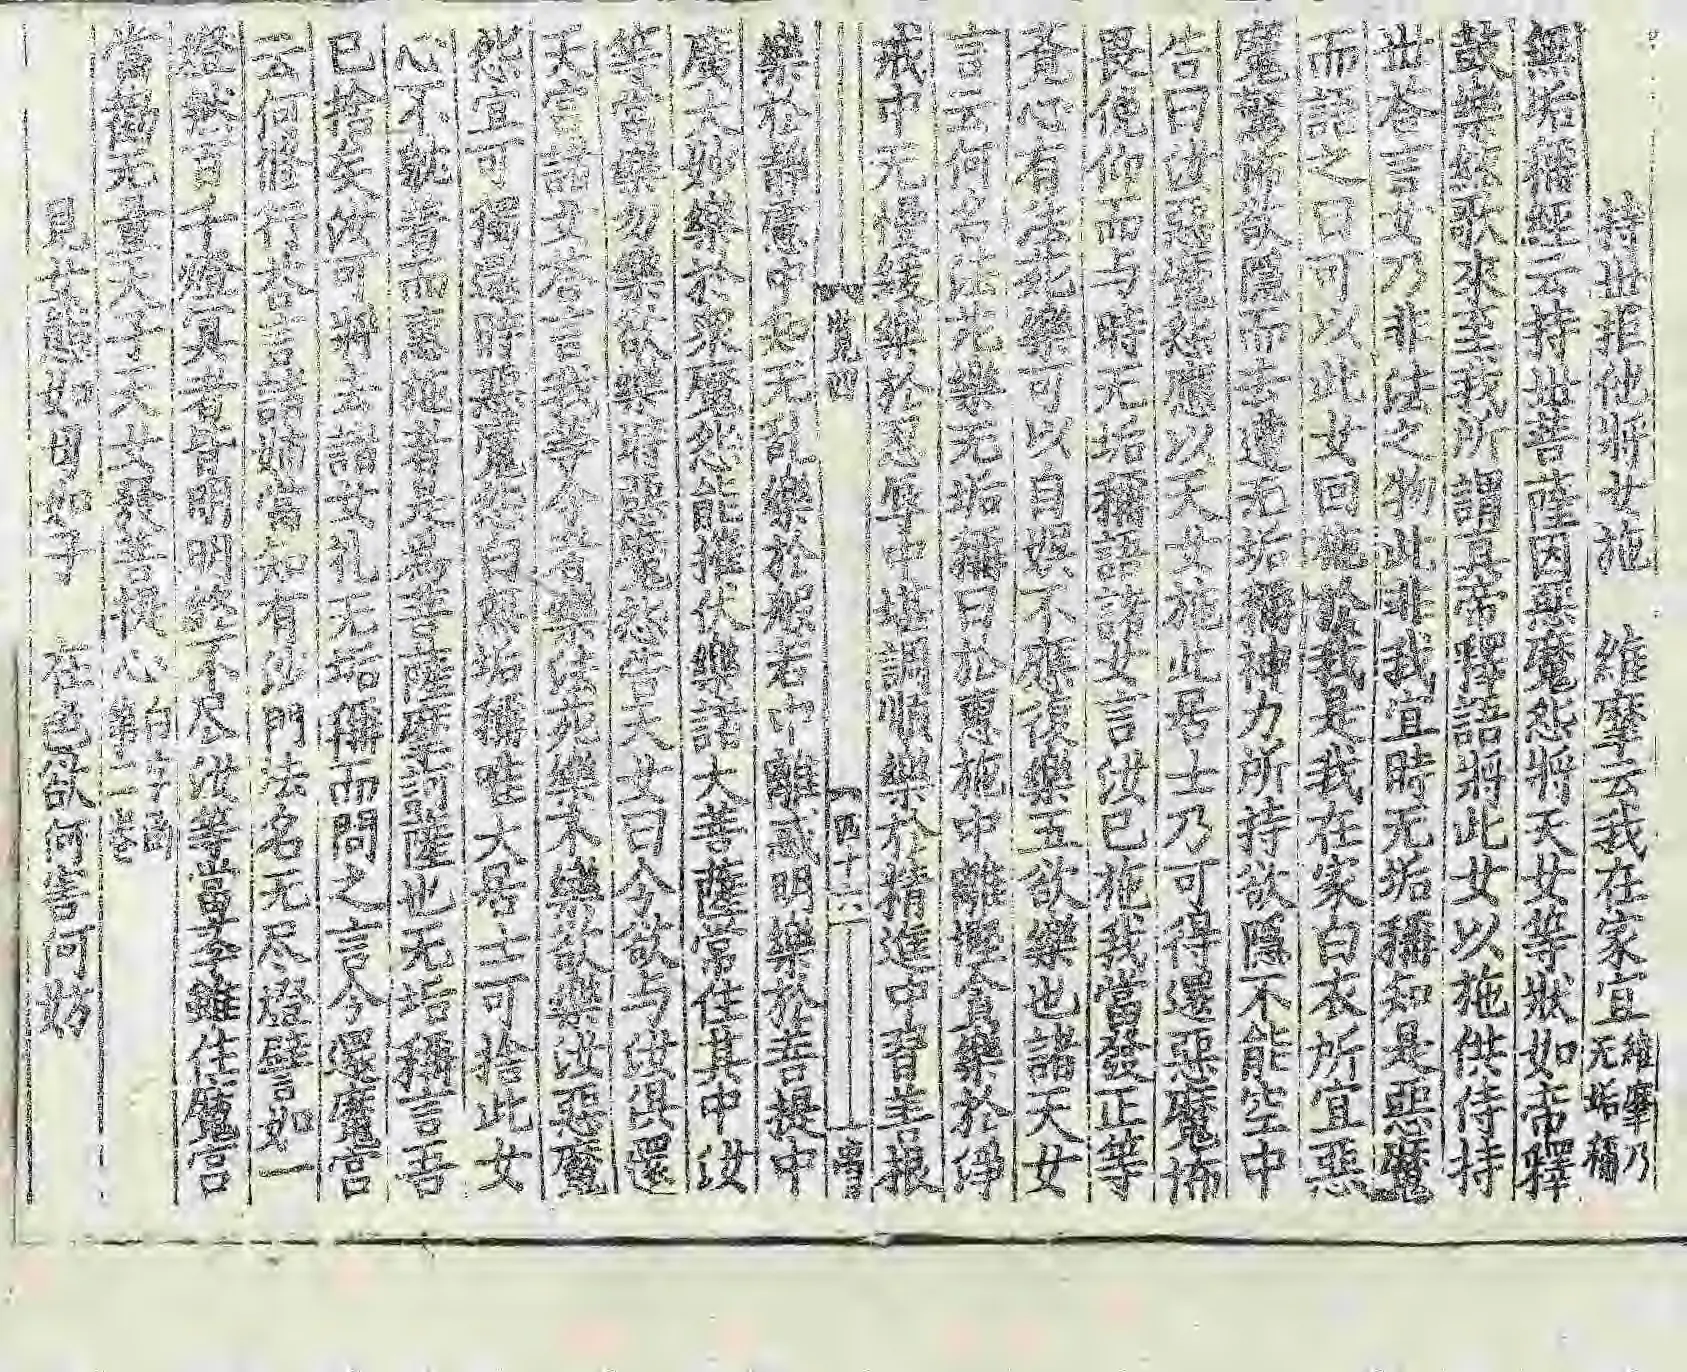 持世拒他將女施　維摩云我在家宜 維摩乃无垢稱
無垢稱經云持世菩薩因惡魔怨將天女等狀如帝釋
鼓樂絃歌來至我所謂真帝釋語將此女以施供侍持
世荅言女乃非法之物此非我宜時无垢稱知是惡魔
而語之曰可以此女回施於我是我在家白衣所宜惡
魔驚怖欲隱而去遭无垢稱神力所持欲隱不能空中
告曰汝惡魔怨應以天女施此居士乃可得還惡魔怖
畏俛仰而与時无垢稱語諸女言汝已施我當發正等
覚心有法苑樂可以自娛不應復樂五欲樂也諸天女
言云何名法苑樂无垢稱曰於惠施中離慳貪樂於淨
戒中无慢緩樂於忍辱中堪調順樂於精進中習善根
覽四　四十六
樂於靜慮中知无乱樂於般若中離惑明樂於菩提中
廣大妙樂於衆魔怨能摧伏樂諸大菩薩常住其中汝
等當樂勿樂欲樂時惡魔怨告天女曰今欲与汝俱還
天宮諸女荅言我等今者樂法苑樂不樂欲樂汝惡魔
怨宜可獨還時惡魔怨白無垢稱唯大居士可捨此女
心不耽着而惠施者是爲菩薩摩訶薩也无垢稱言吾
已捨矣汝可將去諸女礼无垢稱而問之言今還魔宮
云何修行荅言諸姊當知有妙門法名无尽燈譬如一
燈然百千燈冥者皆明明終不尽汝等當尔雖住魔宮
當勸无量天子天女發菩提心 白字函第二卷
見女顏如日如子　在色欲何害何妨